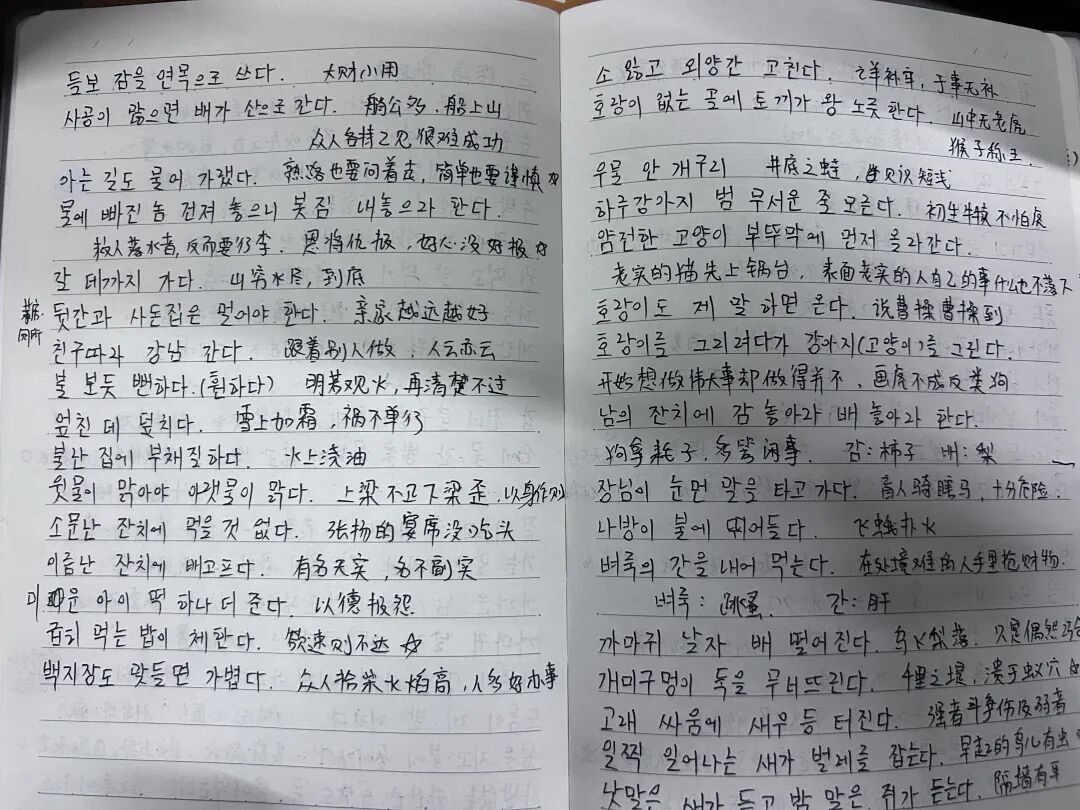 들보 감을 연목으로 쓰다. 大财小用
사공이 많으면 배가 산으로 간다. 船公多,船上山
众人各持己见很难成功
아는 길도 물어 가랬다. 熟路也要问着走,简单也要谨慎☆
물에 빠진 놈 건져 놓으니 봇짐 내놓으라 한다.
救人落水者,反而要行李. 恩将仇报,好心没好报☆
갈 데까지 가다. 山穷水尽,到底
뒷간과 사돈집은 멀어야 한다. 亲家越远越好
厕所
친구따라 강남 간다. 跟着别人做:人云亦云
불 보듯 뻔하다.(훤하다) 明若观火,再清楚不过
엎친 데 덮치다. 雪上加霜,祸不单行
불난 집에 부채질하다. 火上浇油
윗물이 맑아야 아랫물이 맑다. 上梁不正下梁歪,以身作则
소문난 잔치에 먹을 것 없다. 张扬的宴席没吃头
이름난 잔치에 배고프다. 有名无实,名不副实
미운 아이 떡 하나 더 준다. 以德报怨
급히 먹는 밥이 체한다. 欲速则不达☆
백지장도 맞들면 가볍다. 众人拾柴火焰高,人多好办事
소 잃고 외양간 고친다. 亡羊补牢,于事无补
호랑이 없는 골에 토끼가 왕 노릇 한다. 山中无老虎
猴子称王.
우물 안 개구리 井底之蛙,见识短浅
하루강아지 범 무서운 줄 모른다. 初生牛犊不怕虎
얌전한 고양이 부뚜막에 먼저 올라간다.
老实的猫先上锅台,表面老实的人自己的事什么也不落下
호랑이도 제 말 하면 온다. 说曹操曹操到
호랑이를 그리려다가 강아지(고양이)를 그린다.
开始想做伟大事却做得并不,画虎不成反类狗
남의 잔치에 감 놓아라 배 놓아라 한다.
狗拿耗子,多管闲事. 감:柿子 배:梨
장님이 눈먼 말을 타고 가다. 盲人骑瞎马,十分危险.
나방이 불에 뛰어들다. 飞蛾扑火
벼룩의 간을 내어 먹는다. 在处境难的人手里抢财物.
벼룩:跳蚤 간:肝
까마귀 날자 배 떨어진다. 乌飞梨落.只是偶然巧合
개미구멍이 둑을 무너뜨린다. 千里之堤,溃于蚁穴
고래 싸움에 새우 등 터진다. 强者斗争伤及弱者
일찍 일어나는 새가 벌레를 잡는다. 早起的鸟儿有虫
낮말은 새가 듣고 밤 말은 쥐가 듣는다. 隔墙有耳